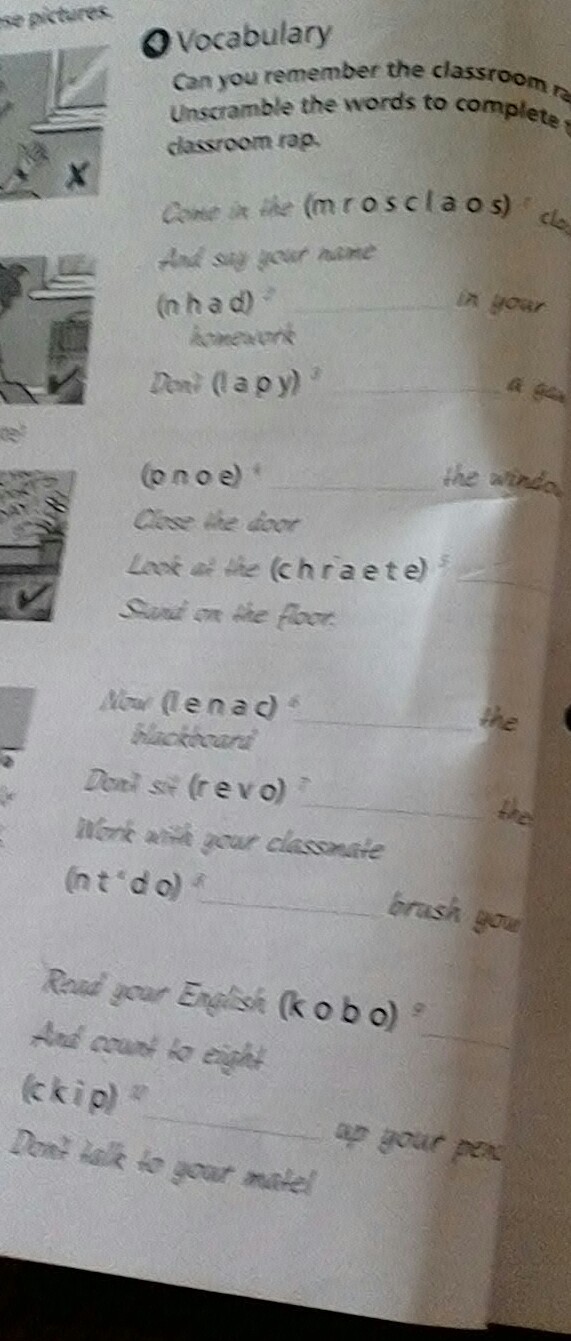 se pictures.
4 Vocabulary
Can you remember the classroom ra
Unscramble the words to complete t
classroom rap.
Come in the (m r o s c l a o s) 1 cla
And say your name
(n h a d) 2 in your
homework
Don't (l a p y) 3 a ga
(p n o e) 4 the window
Close the door
Look at the (c h r a e t e) 5
Stand on the floor.
Now (l e n a c) 6 the
blackboard
Don't sit (r e v o) 7 the
Work with your classmate
(n t ' d o) 8 brush you
Read your English (k o b o) 9
And count to eight
(c k i p) 10 up your penc
Don't talk to your mate!